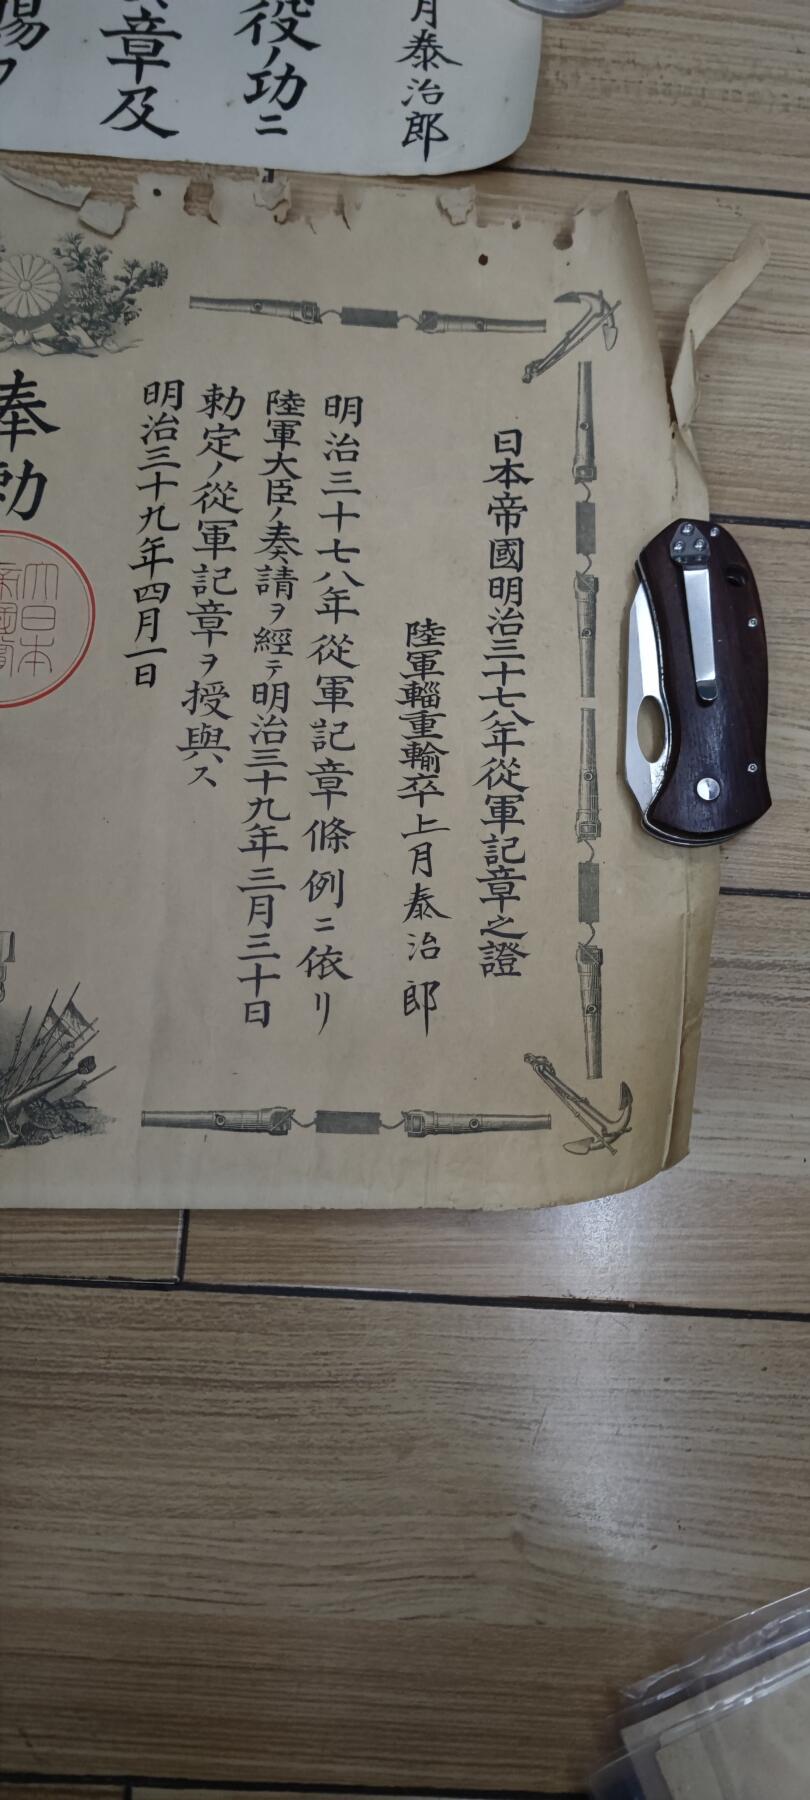 月泰治郎
役ノ功ニ
章及
日本帝國明治三十七八年從軍記章之證
陸軍輜重輸卒上月泰治郎
明治三十七八年從軍記章條例ニ依リ
陸軍大臣ノ奏請ヲ經テ明治三十九年三月三十日
勅定ノ從軍記章ヲ授與ス
明治三十九年四月一日
奉勅
大日本